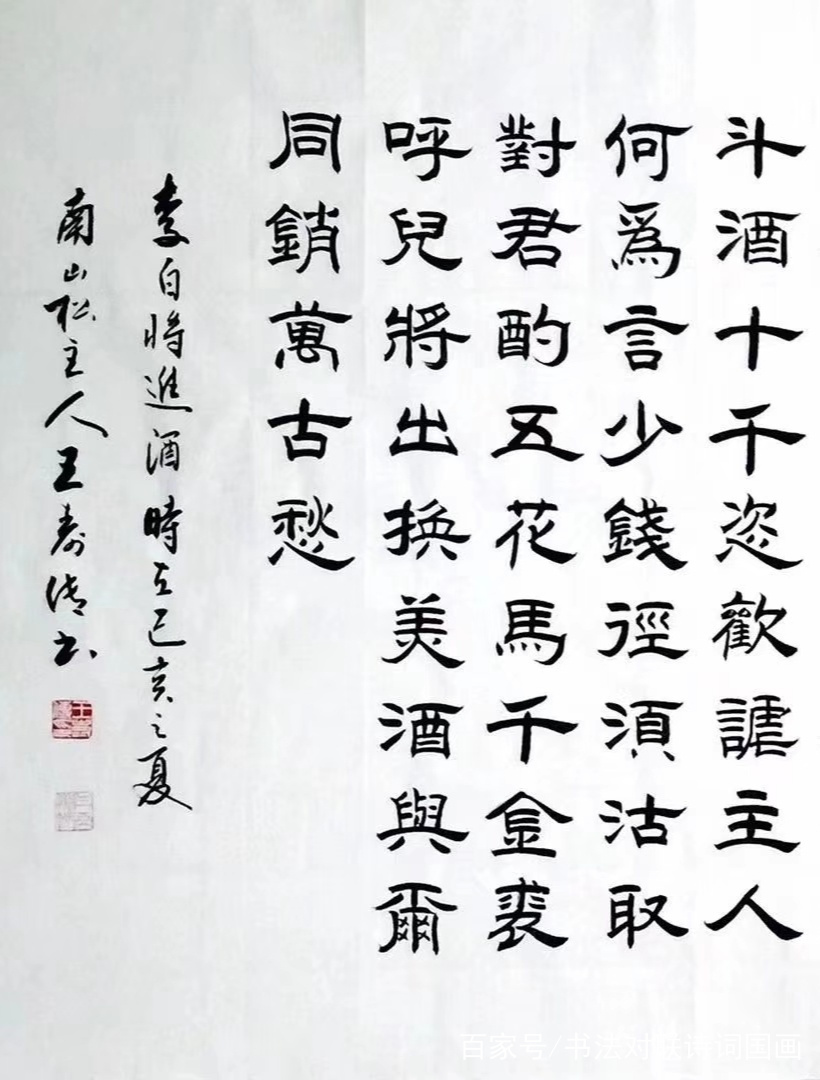 斗酒十千恣歡謔主人
何爲言少錢徑須沽取
對君酌五花馬千金裘
呼兒將出換美酒與爾
同銷萬古愁
李白將進酒時在己亥之夏
南山松主人王壽傳書
百家号/书法对联诗词国画